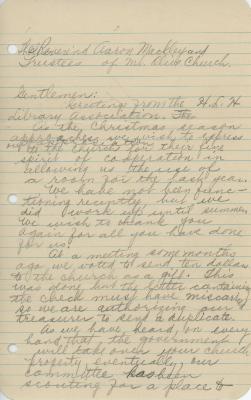 To Reverend Aaron Mackley and
Trustees of Mt. Olive Church.
Gentlemen:
Greetings from the H.D.H.
Library Association. The
As the Christmas season
approaches we wish to express
our appreciation
to the church for their fine
spirit of cooperation in
allowing us the use of
a room for the past year.
We have not been func-
tioning recently, but we
did work up until summer
We wish to thank you
again for all you have done
for us.
At a meeting some months
ago we voted to send ten dollars
to the church as a gift. This
was done, but the letter containing
the check must have miscarried
so we are authorizing our
treasurer to send a duplicate.
As we have heard, on every
hand that the government
will take over your church
property, eventually, our
committee has been
scouting for a place to